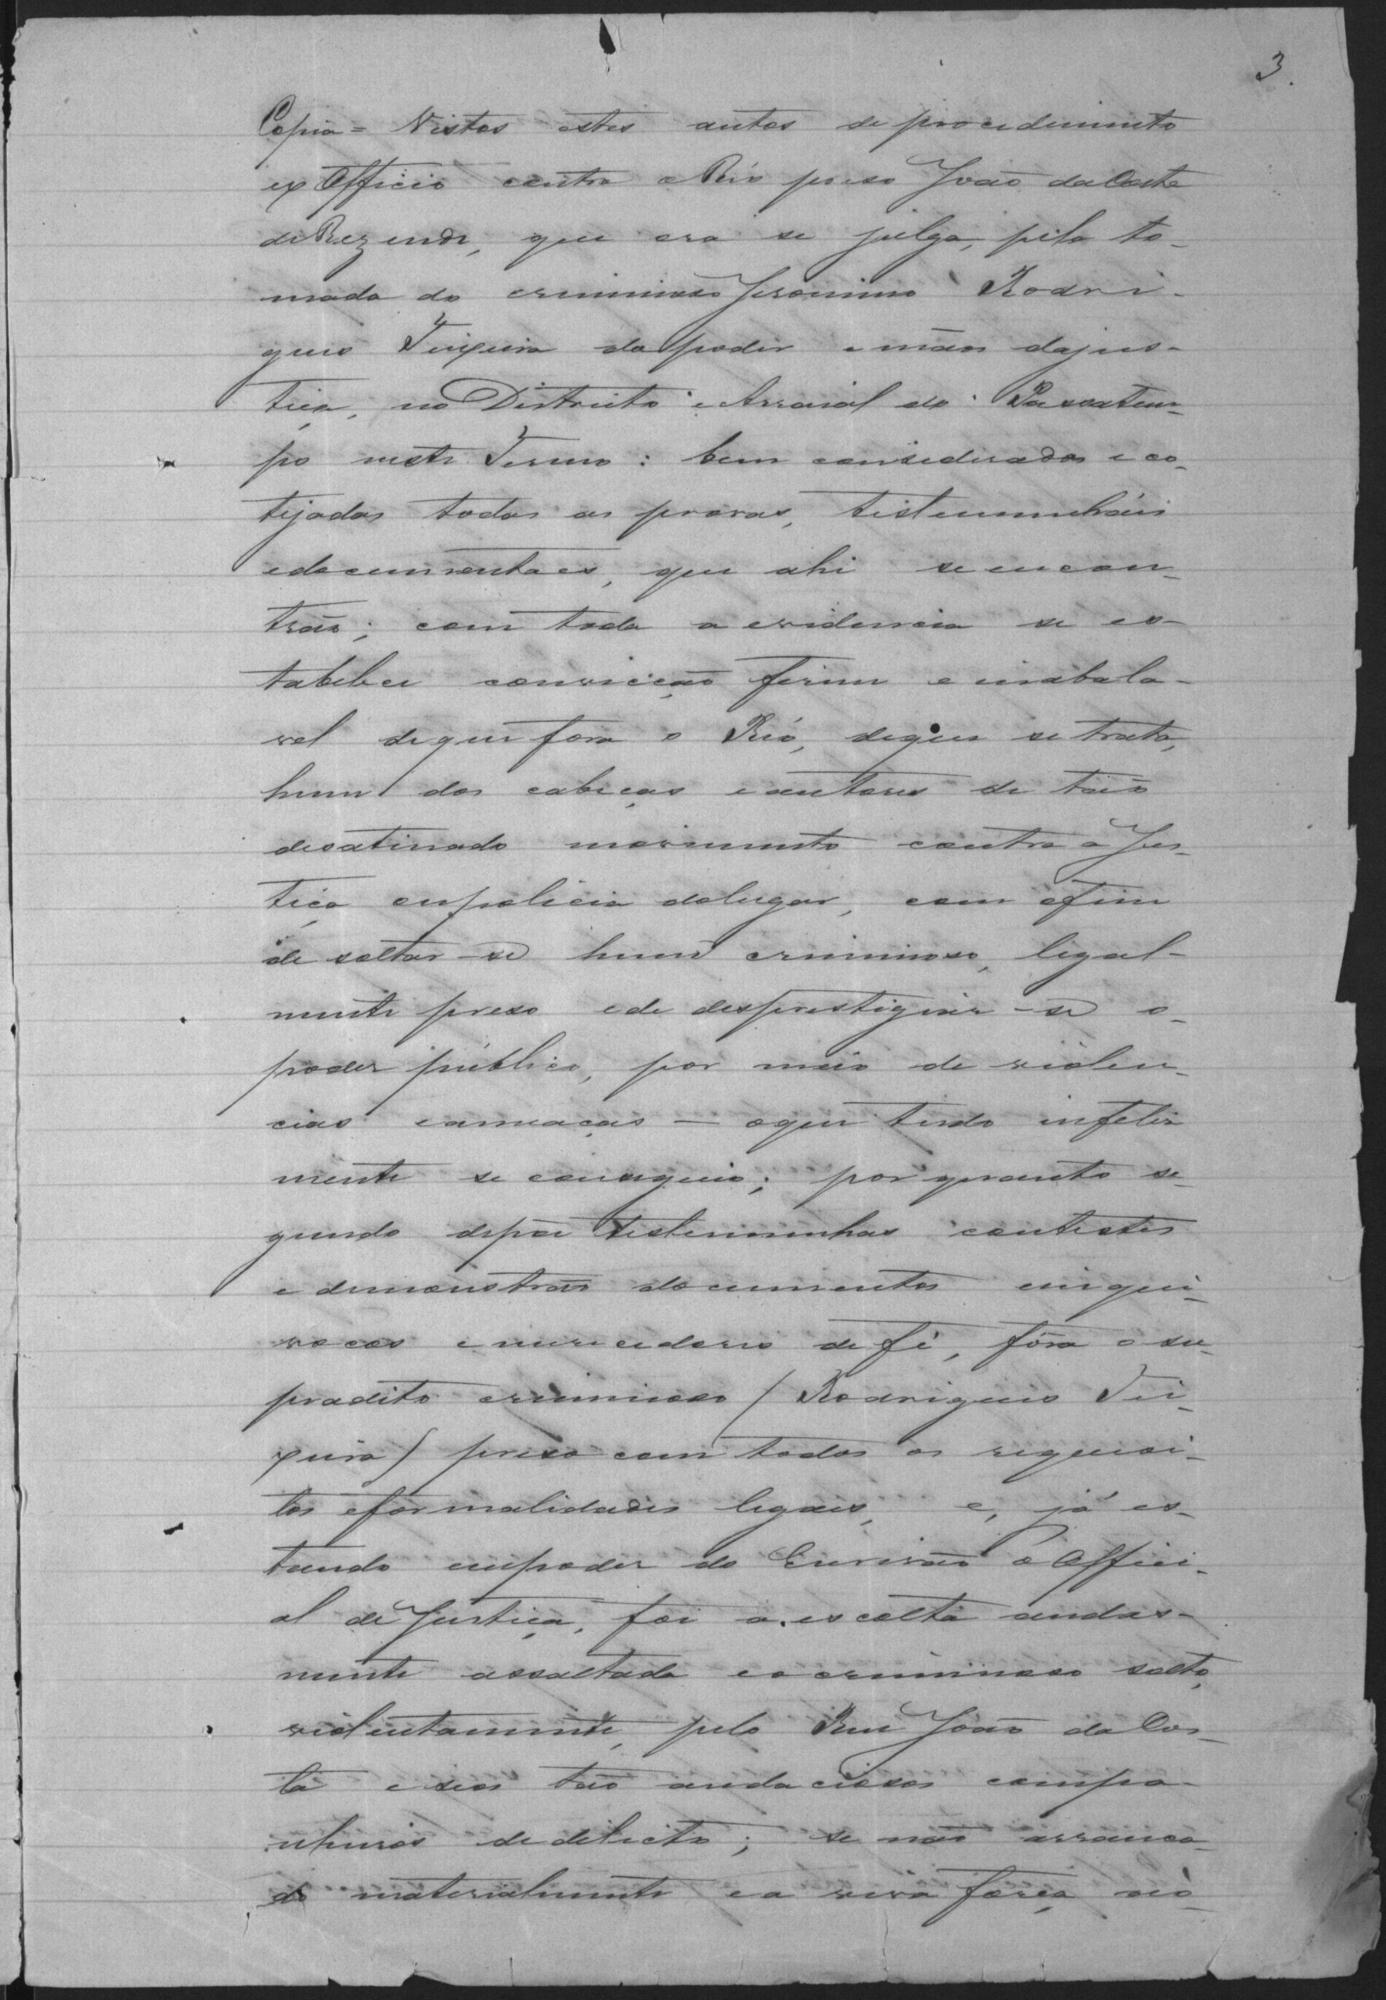 3.
Copia = Vistos estes autos de procedimento
ex Officio contra o Réo preso João da Costa
de Rezende, que ora se julga, pela to-
mada do criminoso Jeronimo Rodri-
gues Teixeira do poder e mãos da jus-
tiça, no Districto e Arraial do Passatem-
po neste Termo: bem considerados e co-
tejadas todas as provas, testemunháes
e documentaes, que ahi se encon-
trão; com toda a evidencia se es-
tabelece convicção firme e inabala-
vel de que fora o Réo, de que se trata,
hum dos cabeças e autores de tão
desatinado movimento contra a Jus-
tiça e a policia do lugar, com o fim
de soltar-se hum criminoso, legal-
mente preso e de desprestigiar-se o
poder público, por meio de violen-
cias e ameaças — o que tudo infeliz
mente se conseguio; por quanto se-
gundo depõe testemunhas contestes
e demonstrão documentos inequi-
vocos e merecedores de fé, fôra o su-
pradito criminoso (Rodrigues Tei-
xeira) preso com todos os requisi-
tos e formalidades legaes, e, já es-
tando em poder do Escrivão e Offici-
al de Justiça, foi a escolta audas-
mente assaltada e o criminoso solto,
violentamente, pelo Reu João da Cos-
ta e seos tão audaciosos compa-
nheiros de delicto; se não arranca-
do materialmente e a viva força ao